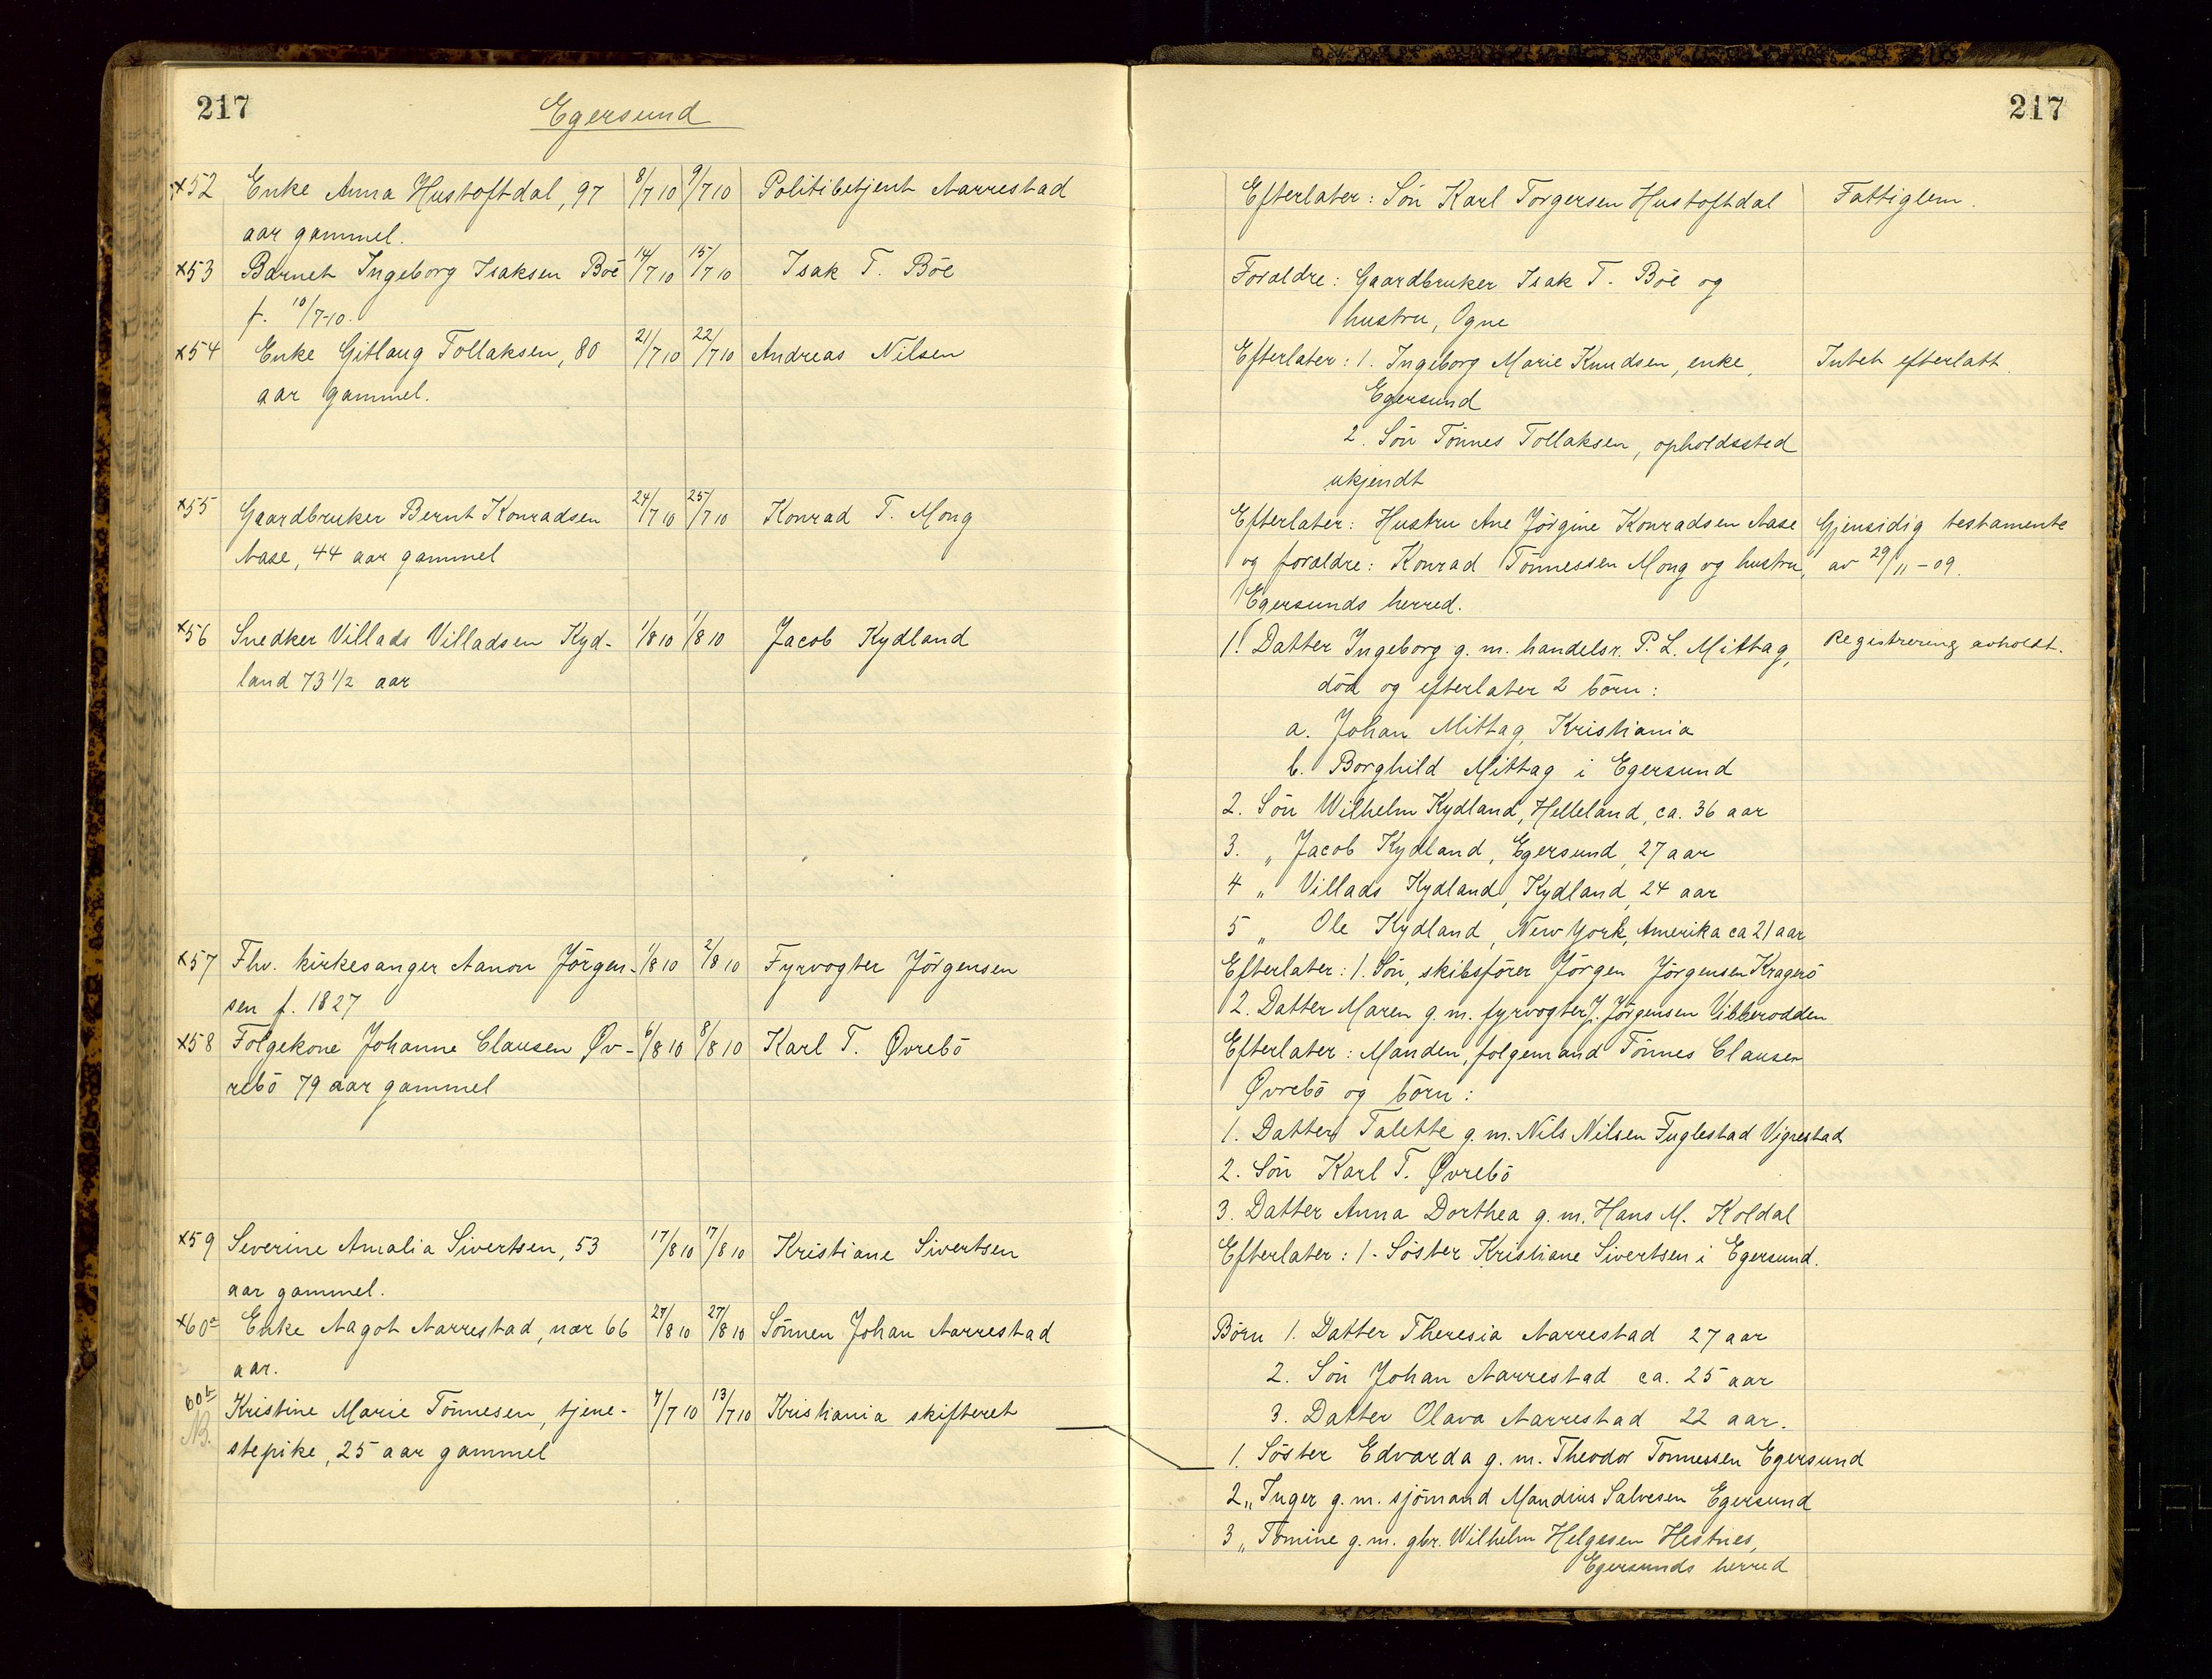 217
Egersund
x52 Enke Anna Hustoftdal, 97 8/7 10 9/7 10 Politibetjent Aarrestad
aar gammel.
x53 Barnet Ingeborg Isaksen Böe 14/7 10 15/7 10 Isak T. Böe
f. 10/7-10.
x54 Enke Gitlaug Tollaksen, 80 21/7 10 22/7 10 Andreas Nilsen
aar gammel.
x55 Gaardbruker Bernt Konradsen 24/7 10 25/7 10 Konrad T. Mong
Aase, 44 aar gammel
x56 Snedker Villads Villadsen Kyd- 1/8 10 1/8 10 Jacob Kydland
land 73 1/2 aar
x57 Fhv. kirkesanger Aanon Jörgen- 1/8 10 2/8 10 Fyrvogter Jörgensen
sen f. 1827
x58 Folgekone Johanne Clausen Øv- 6/8 10 8/8 10 Karl T. Øvrebö
rebö 79 aar gammel
x59 Severine Amalia Sivertsen, 53 17/8 10 17/8 10 Kristiane Sivertsen
aar gammel.
x60a Enke Aagot Aarrestad, nær 66 27/8 10 27/8 10 Sönnen Johan Aarrestad
aar.
60b Kristine Marie Tönnesen, tjene- 7/7 10 13/7 10 Kristiania skifteret
NB. stepike, 25 aar gammel
217
Efterlater: Sön Karl Torgersen Hustoftdal Fattiglem.
Forældre: Gaardbruker Isak T. Böe og
hustru, Ogne
Efterlater: 1. Ingeborg Marie Knudsen, enke, Intet efterlatt.
Egersund
2. Sön Tönnes Tollaksen, opholdssted
ukjendt
Efterlater: Hustru Ane Jörgine Konradsen Aase Gjensidig testamente
og forældre: Konrad Tönnessen Mong og hustru, av 29/11-09.
Egersunds herred.
1. Datter Ingeborg g. m. handelsr. P. L. Mittag, Registrering avholdt.
död og efterlater 2 börn:
a. Johan Mittag, Kristiania
b. Borghild Mittag i Egersund
2. Sön Wilhelm Kydland, Helleland, ca. 36 aar
3. " Jacob Kydland, Egersund, 27 aar
4 " Villads Kydland, Kydland, 24 aar
5 " Ole Kydland, New York, Amerika ca 21 aar
Efterlater: 1. Sön, skibsförer Jörgen Jörgensen Kragerö
2. Datter Maren g. m. fyrvogter J. Jörgensen Vibberodden
Efterlater: Manden, folgemand Tönnes Clausen
Øvrebö og börn:
1. Datter Talette g. m. Nils Nilsen Fuglestad Vigrestad
2. Sön Karl T. Øvrebö
3. Datter Anna Dorthea g. m. Hans M. Koldal
Efterlater: 1. Söster Kristiane Sivertsen i Egersund.
Börn 1. Datter Theresia Aarrestad 27 aar
2. Sön Johan Aarrestad ca. 25 aar
3. Datter Olava Aarrestad 22 aar.
1. Söster Edvarda g. m. Theodor Tonnessen Egersund
2 " Inger g. m. sjömand Mandius Salvesen Egersund
3 " Tomine g. m. gbr. Wilhelm Helgesen Hestnes,
Egersunds herred